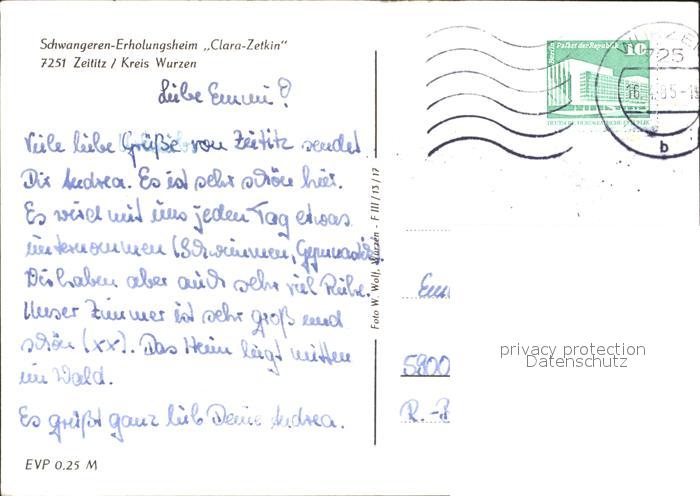 Schwangeren-Erholungsheim „Clara-Zetkin“
7251 Zeititz / Kreis Wurzen
Liebe Emmi!
Viele liebe Grüße von Zeititz sendet
Dir Andrea. Es ist sehr schön hier.
Es wird mit uns jeden Tag etwas
unternommen (Schwimmen, Gymnastik).
Wir haben aber auch sehr viel Ruhe.
Unser Zimmer ist sehr groß und
schön (xx). Das Heim liegt mitten
im Wald.
Es grüßt ganz lieb Deine Andrea.
EVP 0.25 M
Foto W. Wolf, Wurzen - F III/13/17
Berlin Palast der Republik 10
DEUTSCHE DEMOKRATISCHE REPUBLIK
WURZEN
725
b
5800
R.-B
privacy protection
Datenschutz